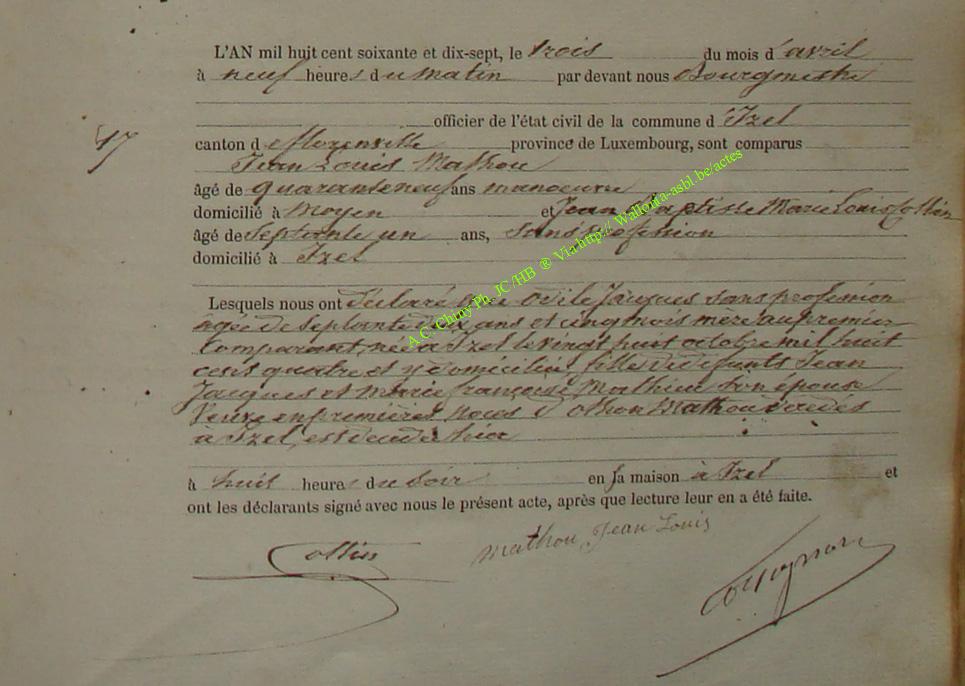 L'AN mil huit cent soixante et dix-sept, le trois du mois d'avril
à neuf heures du matin par devant nous Bourgmestre
officier de l'état civil de la commune d'Izel
17
canton de Florenville province de Luxembourg, sont comparus
Jean Louis Mathou
âgé de quarante neuf ans manoeuvre
domicilié à Moyen et Jean Baptiste Marie Louis Collin
âgé de septante un ans, sans profession
domicilié à Izel
Lesquels nous ont déclaré que Odile Jacques sans profession
âgée de septante deux ans et cinq mois mère au premier
Comparant, née à Izel le vingt huit octobre mil huit
cent quatre et y domiciliée, fille de défunts Jean
Jacques et Marie françoise Mathieu son épouse
Veuve en premières noces d'Othon Mathou décédé
à Izel, est décédée hier
à huit heures du soir en sa maison à Izel et
ont les déclarants signé avec nous le présent acte, après que lecture leur en a été faite.
Collin Mathou, Jean Louis
A.C. Chiny Ph. JC /HB ® Via http:// Wallonia-asbl.be/actes